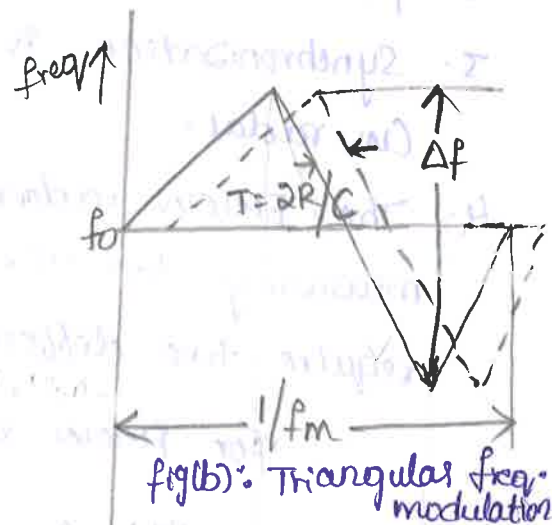 freq↑
Δf
T = 2R/C
fo
1/fm
fig(b): Triangular freq.
modulation